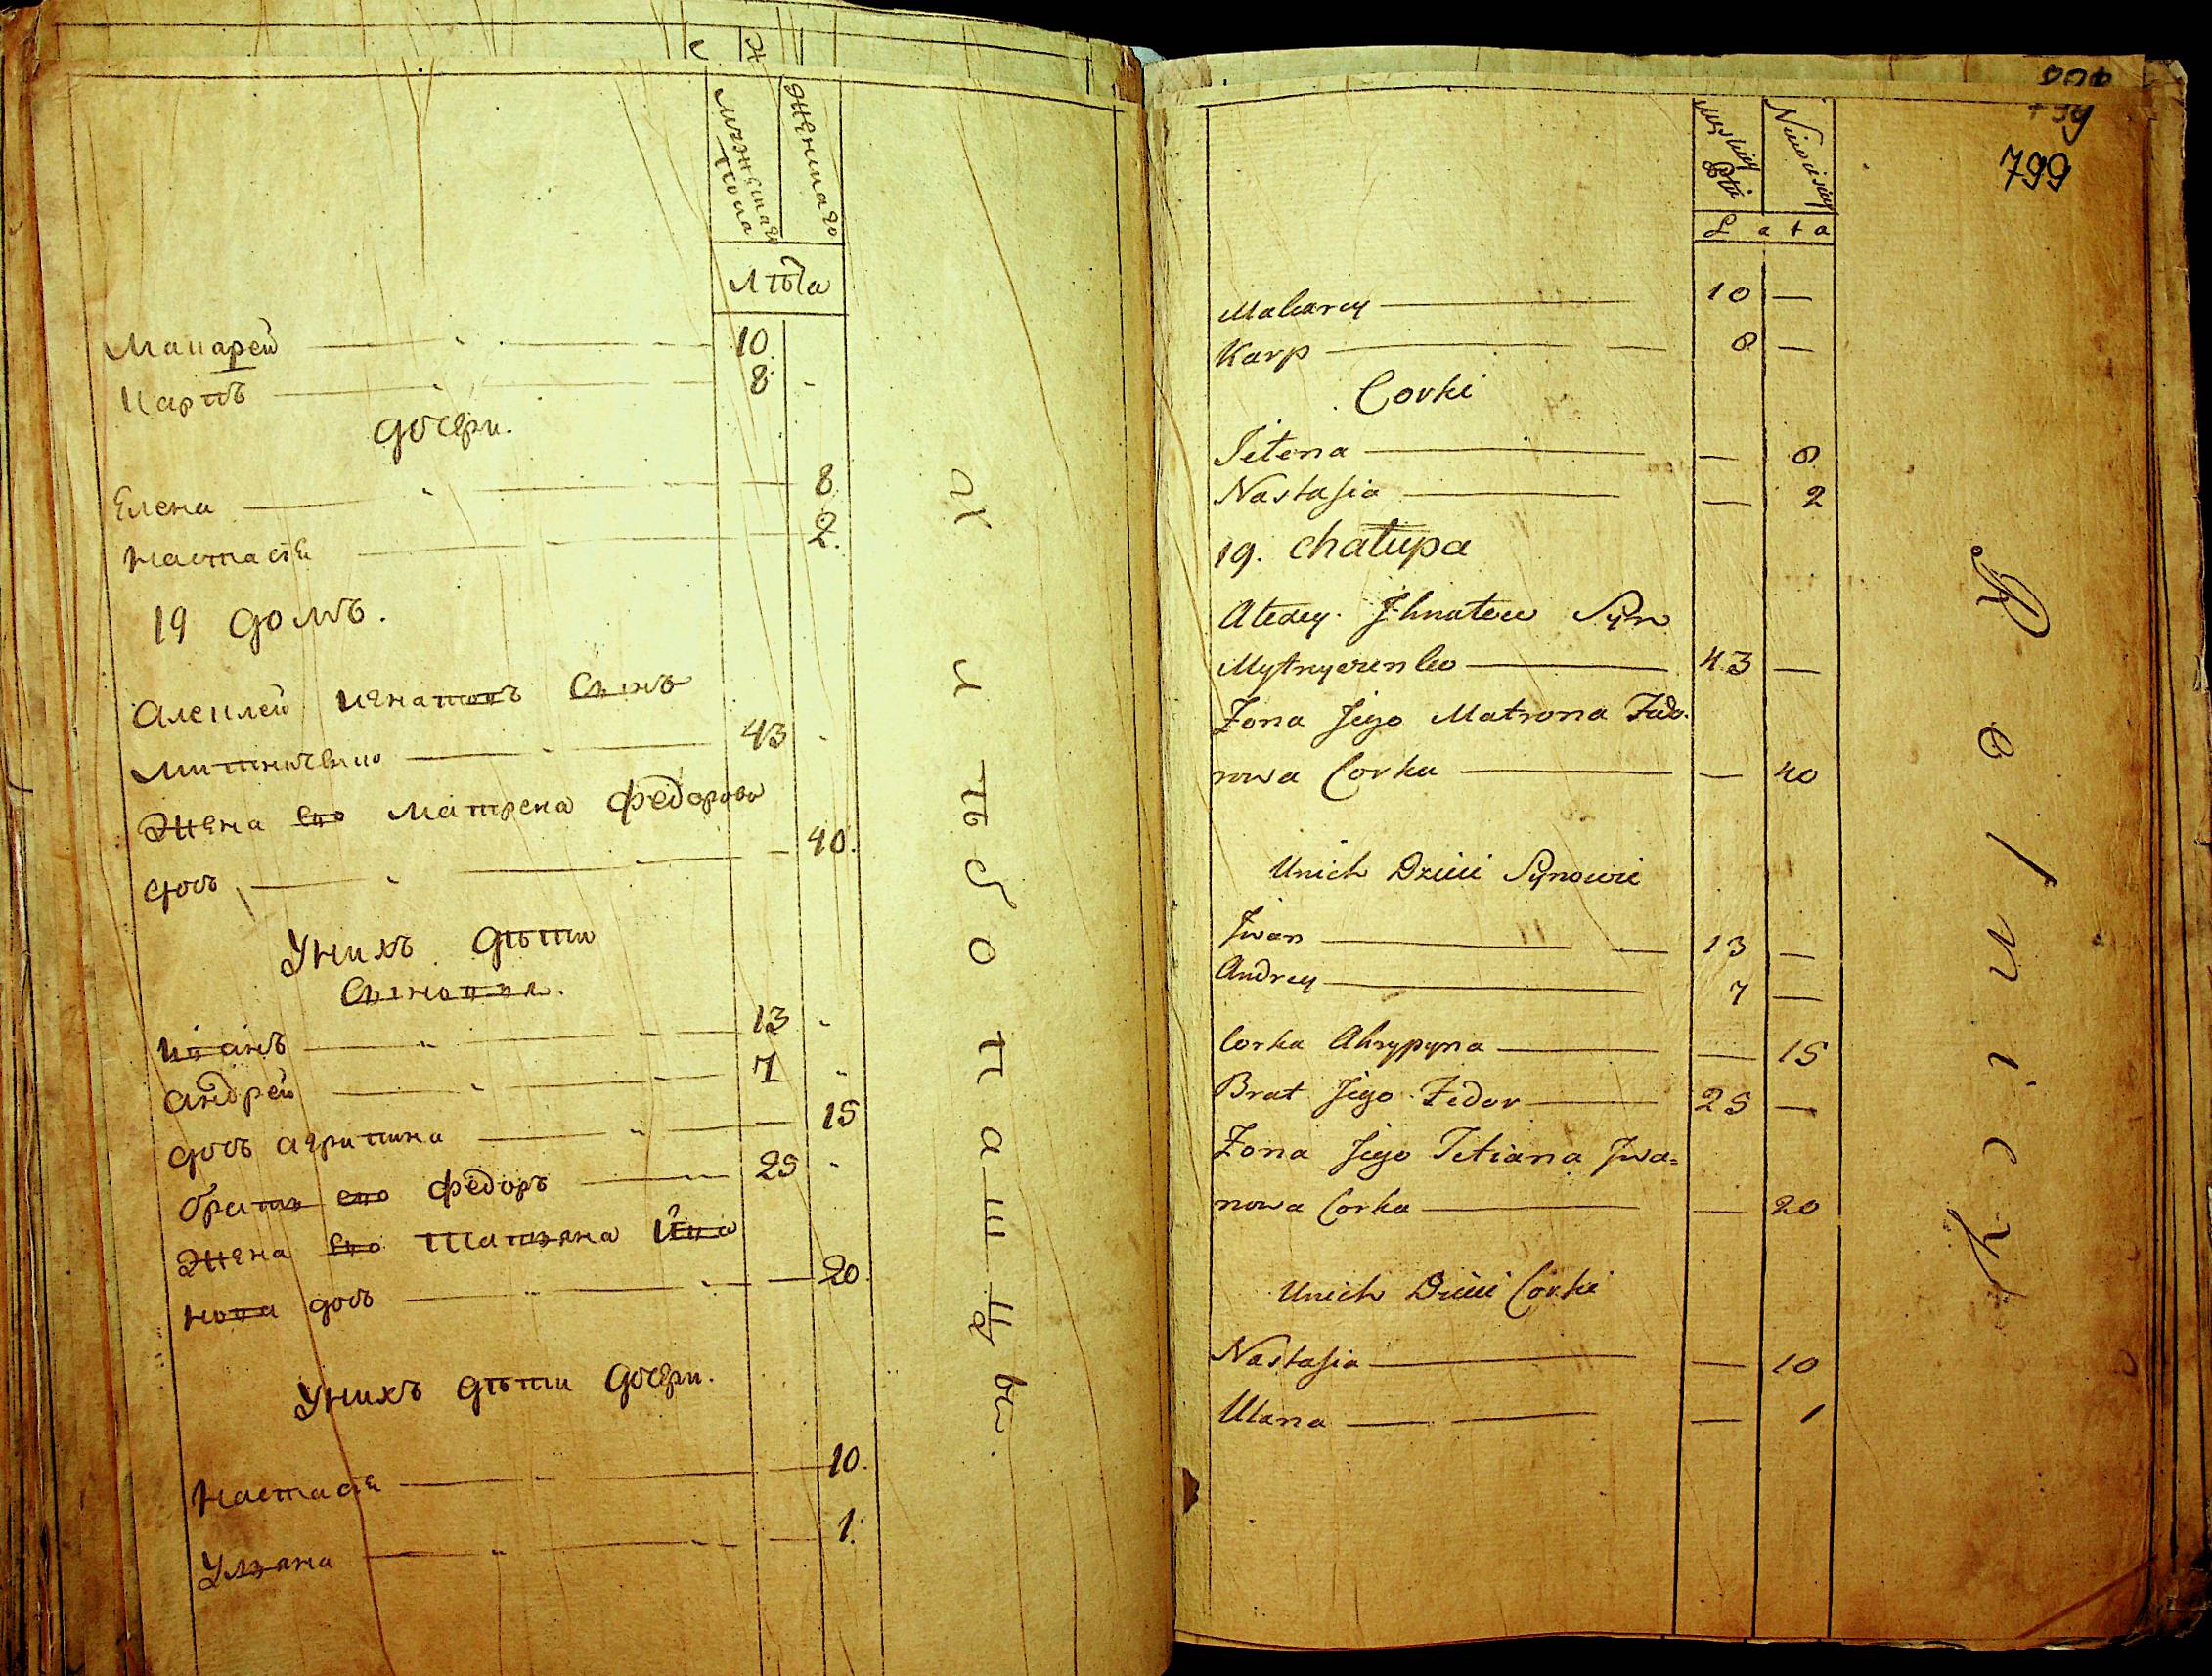 мужеска
пола
женска
лѣта
Макарей 10
Карпъ 8
дочери.
Елена 8
Настасія 2.
19 домъ.
Алексей Игнатовъ Сынъ
Митниченко 43
Жена его Матрена Федорова
дочь 40.
Унихъ дѣти
Сыновья.
Иванъ 13
Андрей 7
дочь Агрипина 15
братъ его Федоръ 25
Жена его Татьяна Ива
нова дочь 20.
Унихъ дѣти дочери.
Настасія 10.
Ульяна 1.
799
Męskiey
Płci
Lata
Makarey 10 —
Karp 8 —
Corki
Jelena — 8
Nastasia — 2
19. chałupa
Alexey Jhnatow Syn
Mytnyczenko 43 —
Żona Jego Matrona Fedo-
rowa Corka — 40
Unich Dzieci Synowie
Jwan 13 —
Andrey 7 —
Corka Ahrypyna — 15
Brat Jego Fedor 25 —
Żona Jego Tetiana Jwa=
nowa Corka — 20
Unich Dzieci Corki
Nastasia — 10
Ulana — 1